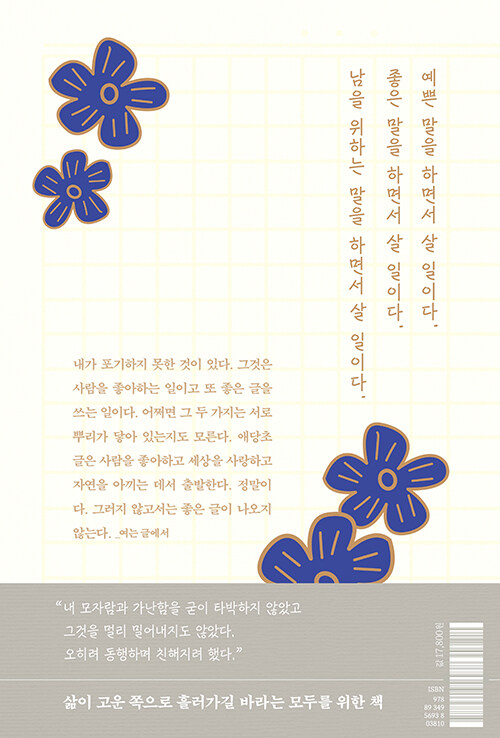 예쁜 말을 하면서 살 일이다.
좋은 말을 하면서 살 일이다.
남을 위하는 말을 하면서 살 일이다.
내가 포기하지 못한 것이 있다. 그것은
사람을 좋아하는 일이고 또 좋은 글을
쓰는 일이다. 어쩌면 그 두 가지는 서로
뿌리가 닿아 있는지도 모른다. 애당초
글은 사람을 좋아하고 세상을 사랑하고
자연을 아끼는 데서 출발한다. 정말이
다. 그러지 않고서는 좋은 글이 나오지
않는다. _여는 글에서
“내 모자람과 가난함을 굳이 타박하지 않았고
그것을 멀리 밀어내지도 않았다.
오히려 동행하며 친해지려 했다.”
삶이 고운 쪽으로 흘러가길 바라는 모두를 위한 책
값 17,800원
ISBN
978
89 349
5693 8
03810